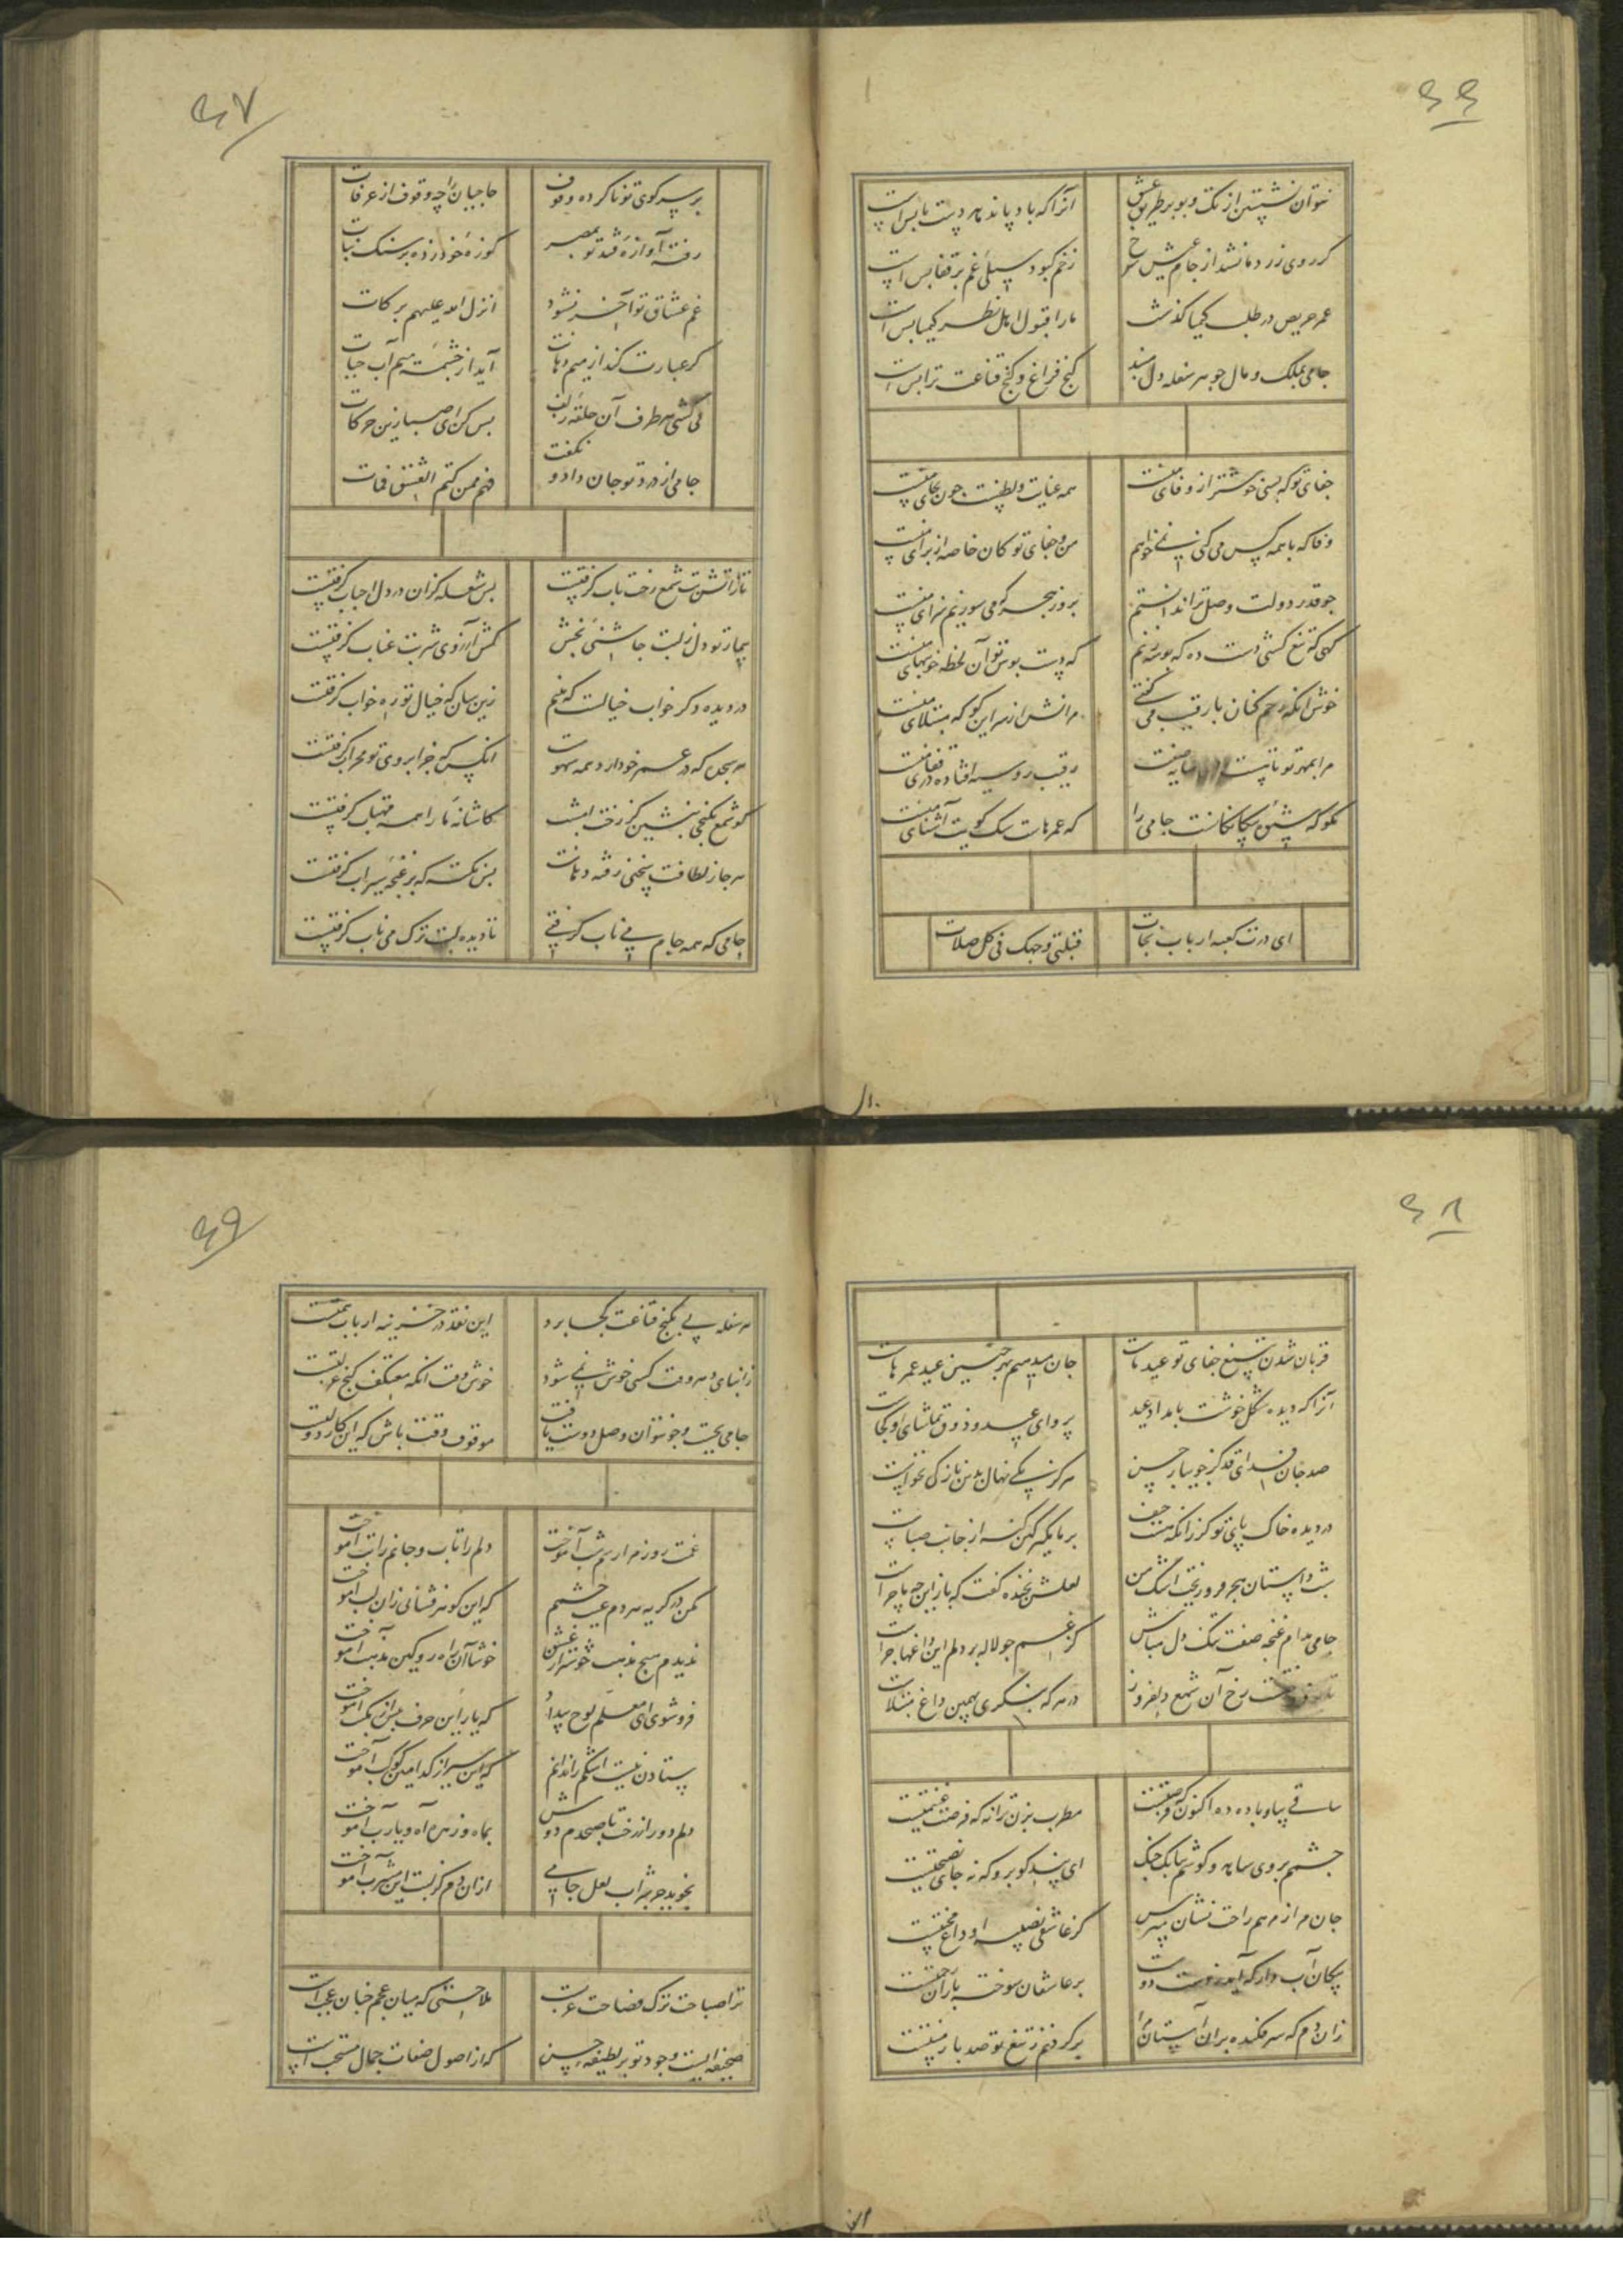 ۶۶
نتوان نشستن از تک و پو بر طریق عشق
آنرا که باد پا ندهد دست پا بس است
کر روی زرد ما نشد از جام عیش سرخ
زخم کبود سیلی غم بر قفا بس است
عمر حریص در طلب کیمیا کذشت
ما را قبول اهل نظر کیمیا بس است
جامی بملک و مال جو هر سفله دل مبند
کنج فراغ و کنج قناعت ترا بس است
جفای تو که بسی خوشتر از وفای منست
همه عنایت و لطفست جون بجای منست
وفا که با همه کس می کنی نمی خواهم
من و جفای تو کان خاصه از برای منست
جو قدر دولت وصل ترا ندانستم
بروز هجر که می سوزیم سزای منست
کهی که تیغ کشی دست ده که بوسه زنم
که دست بوس تو آن لحظه خونبهای منست
خوش آنکه رحم کنان با رقیب می کفتی
مرانش از در این کو که مبتلای منست
مرا بمهر تو تا پست
رقیب رو سیه افتاده در قفای منست
مکو که بیکانکانست جامی را
که عمرهاست سک کویت آشنای منست
ای درت کعبه ارباب نجات
قبلتی وجهک فی کل صلات
۶۷
بر سر کوی تو ناکرده وقوف
حاجیان را چه وقوف از عرفات
رفته آوازه قند تو بمصر
کوزه خود زده بر سنک نبات
غم عشاق تو آخر نشود
انزل الله علیهم برکات
کر عبارت کند از میم دهانت
آید از چشمه میم آب حیات
می کشی هر طرف آن حلقه زلف
بس کن ای صبا زین حرکات
جامی از درد تو جان داد و نکفت
فهم ممن کتم العشق فمات
تا ز آتش تب شمع رخت تاب کرفتست
بس شعله کزان در دل احباب کرفتست
بیمار تو دل ز لبت چاشنیی بخش
کش آرزوی شربت عناب کرفتست
در دیده دکر خواب خیالست که بینم
زین سان که خیال تو ره خواب کرفتست
هر سجده که در عمر خود آرد همه سهوست
آنکس که جز ابروی تو محراب کرفتست
کو شمع بکنجی بنشین کز رخت امشب
کاشانه ما را همه مهتاب کرفتست
هر جا ز لطافت سخنی رفته دهانت
بس نکته که بر غنچه سیراب کرفتست
جامی که همه جام می ناب کرفتی
تا دیده لبت ترک می ناب کرفتست
۶۸
قربان شدن بتیغ جفای تو عید ماست
جان میدهیم بهر چنین عید عمرهاست
آنرا که دیده شکل خوشت بامداد عید
پروای عید و ذوق تماشای او کجاست
صد جان فدای قد تو کز جویبار حسن
هرکز یکی نهال بدین نازکی نخاست
در دیده خاک پای تو کز زانکه هست حیف
بر ما مکیر کین کنه از جانب صباست
شب داستان هجر فرو ریخت اشک من
لعلش بخنده کفت که باز این چه ماجراست
جامی مدام غنچه صفت تنک دل مباش
کز غم جو لاله بر دلم این داغها جراست
رخ آن شمع دلفروز
در هر که بنکری بهمین داغ مبتلاست
ساقی بیا و باده ده اکنون که فرصتست
مطرب بزن ترانه که فرصت غنیمتست
جشمم بروی ساده و کوشم ببانک چنک
ای پند کو برو که نه جای نصیحتست
جان مرا ز مرهم راحت نشان مپرس
کز عاشقی نصیبه او داغ محنتست
پیکان آب دار که آید ز دست دوست
بر عاشقان سوخته باران رحمتست
زان دم که سر فکنده بران آستانه را
بر کردنم ز تیغ تو صد بار منتست
۶۹
هر سفله پی بکنج قناعت کجا برد
این نقد در خزینه ارباب همتست
ز ابنای دهر وقت کسی خوش نمی شود
خوش وقت آنکه معتکف کنج عزلتست
جامی بجست و جو نتوان وصل دوست یافت
موقوف وقت باش که این کار دولتست
غمت روز مرا رسم شب آموخت
دلم را تاب و جانم را تب آموخت
مکن در کریه هردم عیب چشمم
که این کوهر فشانی زان لب آموخت
ندیدم هیچ مذهب خوشتر از عشق
خوشا آن راه رو کین مذهب آموخت
فرو شوی ای معلم لوح بیداد
که یار این حرف پیش از مکتب آموخت
ستادن نیست اشکم را ندانم
که این سیر از کدامین کوکب آموخت
دلم دور از رخت تا صبحدم دوش
بماه و زهره آه و یارب آموخت
نخوید جز شراب لعل جامی
ازان دم کز لبت این مشرب آموخت
ترا صباحت ترک و فصاحت عربست
ملاحتی که میان عجم خیان عجبست
صحیفه ایست وجود تو پر لطیفه حسن
که از اصول صفات جمال منتخبست